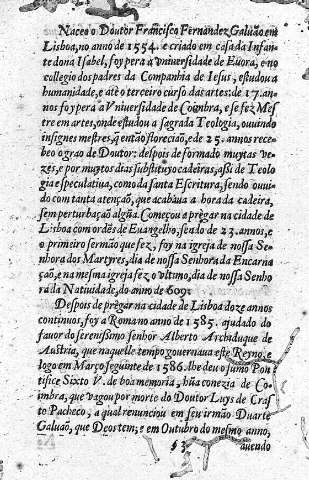 Naceo o Doutor Francisco Fernandez Galuão em
Lisboa, no anno de 1554. e criado em casa da Infan-
te dona Isabel, foy pera a Vniuersidade de Euora, e no
collegio dos padres da Companhia de Iesus, estudou a
humanidade, e atè o terceiro curso das artes: de 17. an-
nos foy pera a Vniuersidade de Coimbra, e se fez Mes-
tre em artes, onde estudou a sagrada Teologia, ouuindo
insignes mestres, q̃ então florecião, e de 25. annos rece-
beo o grao de Doutor: despois de formado muytas ve-
zes, e por muytos dias substituyo cadeiras, assi de Teolo-
gia especulatiua, como da santa Escritura, sendo ouui-
do com tanta atenção, que acabaua a hora da cadeira,
sem perturbação algũa. Começou a prègar na cidade de
Lisboa com ordẽs de Euangelho, sendo de 23. annos, e
o primeiro sermão que fez, foy na igreja de nossa Se-
nhora dos Martyres, dia de nossa Senhora da Encarna
ção, e na mesma igreja fez o vltimo, dia de nossa Senho
ra da Natiuidade, do anno de 609.
Despois de prègar na cidade de Lisboa doze annos
continuos, foy a Roma no anno de 1585. ajudado do
fauor do serenissimo senhor Alberto Archiduque de
Austria, que naquelle tempo gouernaua este Reyno, e
logo em Março seguinte de 1586. lhe deu o sumo Pon
tifice Sixto V. de boa memoria, hũa conezia de Co-
imbra, que vagou por morte do Doutor Luys de Cras
to Pacheco, a qual renunciou em seu irmão Duarte
Galuão, que Deos tem; e em Outubro do mesmo anno,
auendo